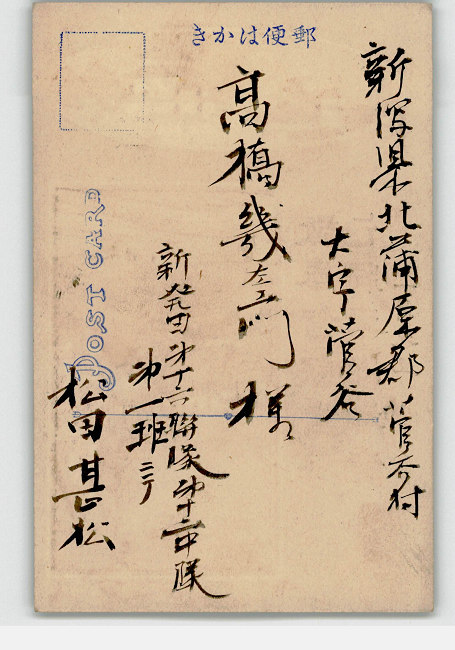 郵便はかき
POST CARD
新潟県北蒲原郡菅谷村
大字菅谷
高橋幾左エ門様
新発田第十六聯隊第十一中隊
第一班ニテ
松田甚松